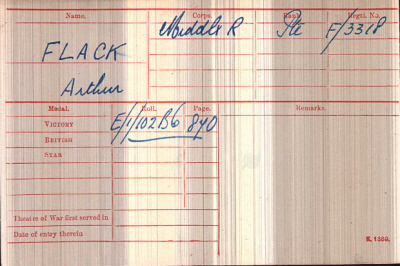 Name. Corps. Rank. Regtl. No.
FLACK Middl'x R Pte F/3318
Arthur
Medal. Roll. Page. Remarks.
VICTORY E/1/102B6 840
BRITISH
STAR
Theatre of War first served in
Date of entry therein
K. 1380.